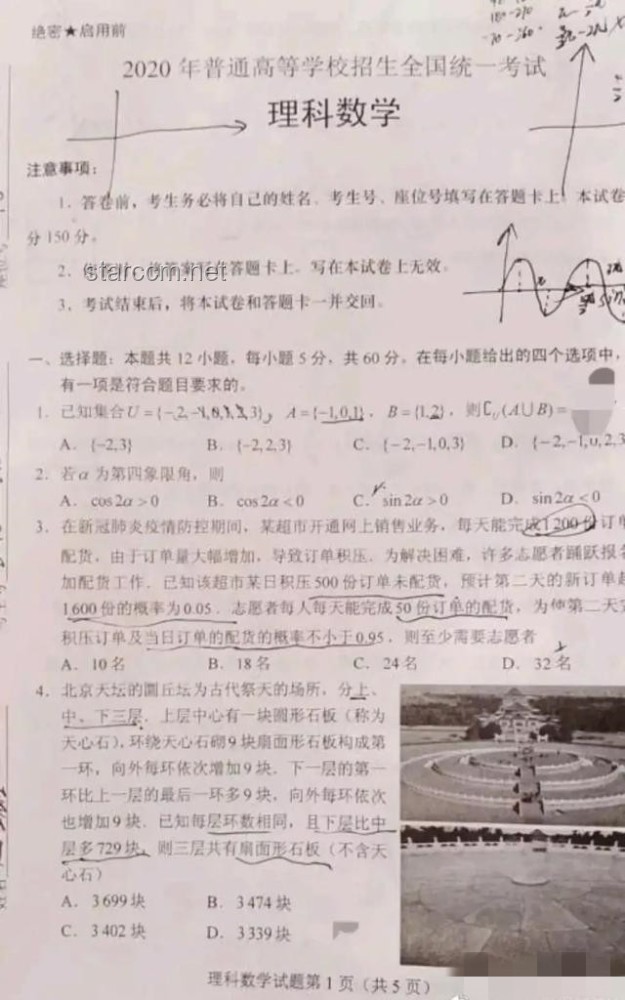 绝密★启用前
2020 年普通高等学校招生全国统一考试
理科数学
注意事项：
1．答卷前，考生务必将自己的姓名、考生号、座位号填写在答题卡上．本试卷
分 150 分。
2．答案写在答题卡上．写在本试卷上无效。
starcom.net
3．考试结束后，将本试卷和答题卡一并交回。
一、选择题：本题共 12 小题，每小题 5 分，共 60 分。在每小题给出的四个选项中，
有一项是符合题目要求的。
1．已知集合 U = {-2,-1,0,1,2,3}，A = {-1,0,1}，B = {1,2}，则 ∁U(A∪B) =
A．{-2,3}　B．{-2,2,3}　C．{-2,-1,0,3}　D．{-2,-1,0,2,3
2．若 α 为第四象限角，则
A．cos2α > 0　B．cos2α < 0　C．sin2α > 0　D．sin2α < 0
3．在新冠肺炎疫情防控期间，某超市开通网上销售业务，每天能完成1 200份订单
配货，由于订单量大幅增加，导致订单积压．为解决困难，许多志愿者踊跃报名
加配货工作．已知该超市某日积压 500 份订单未配货，预计第二天的新订单超
1600 份的概率为 0.05．志愿者每人每天能完成 50 份订单的配货，为使第二天完
积压订单及当日订单的配货的概率不小于 0.95，则至少需要志愿者
A．10 名　B．18 名　C．24 名　D．32 名
4．北京天坛的圜丘坛为古代祭天的场所，分上、
中、下三层．上层中心有一块圆形石板（称为
天心石），环绕天心石砌 9 块扇面形石板构成第
一环，向外每环依次增加 9 块．下一层的第一
环比上一层的最后一环多 9 块，向外每环依次
也增加 9 块．已知每层环数相同，且下层比中
层多 729 块，则三层共有扇面形石板（不含天
心石）
A．3 699 块　B．3 474 块
C．3 402 块　D．3 339 块
理科数学试题第 1 页（共 5 页）